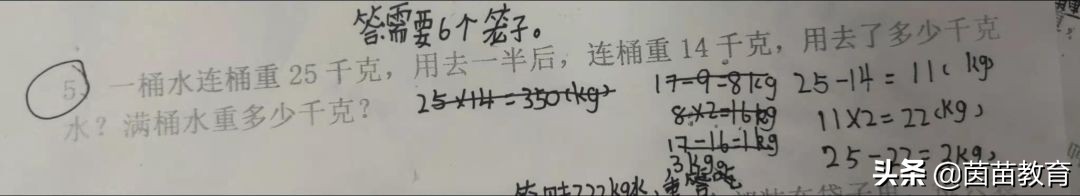 答需要6个笼子。
5. 一桶水连桶重25千克，用去一半后，连桶重14千克，用去了多少千克
水？满桶水重多少千克？
25×14=350(kg)
17-9=8kg
8×2=16kg
17-16=1kg
25-14=11(kg)
11×2=22(kg)
25-22=3kg
头条 @茵苗教育